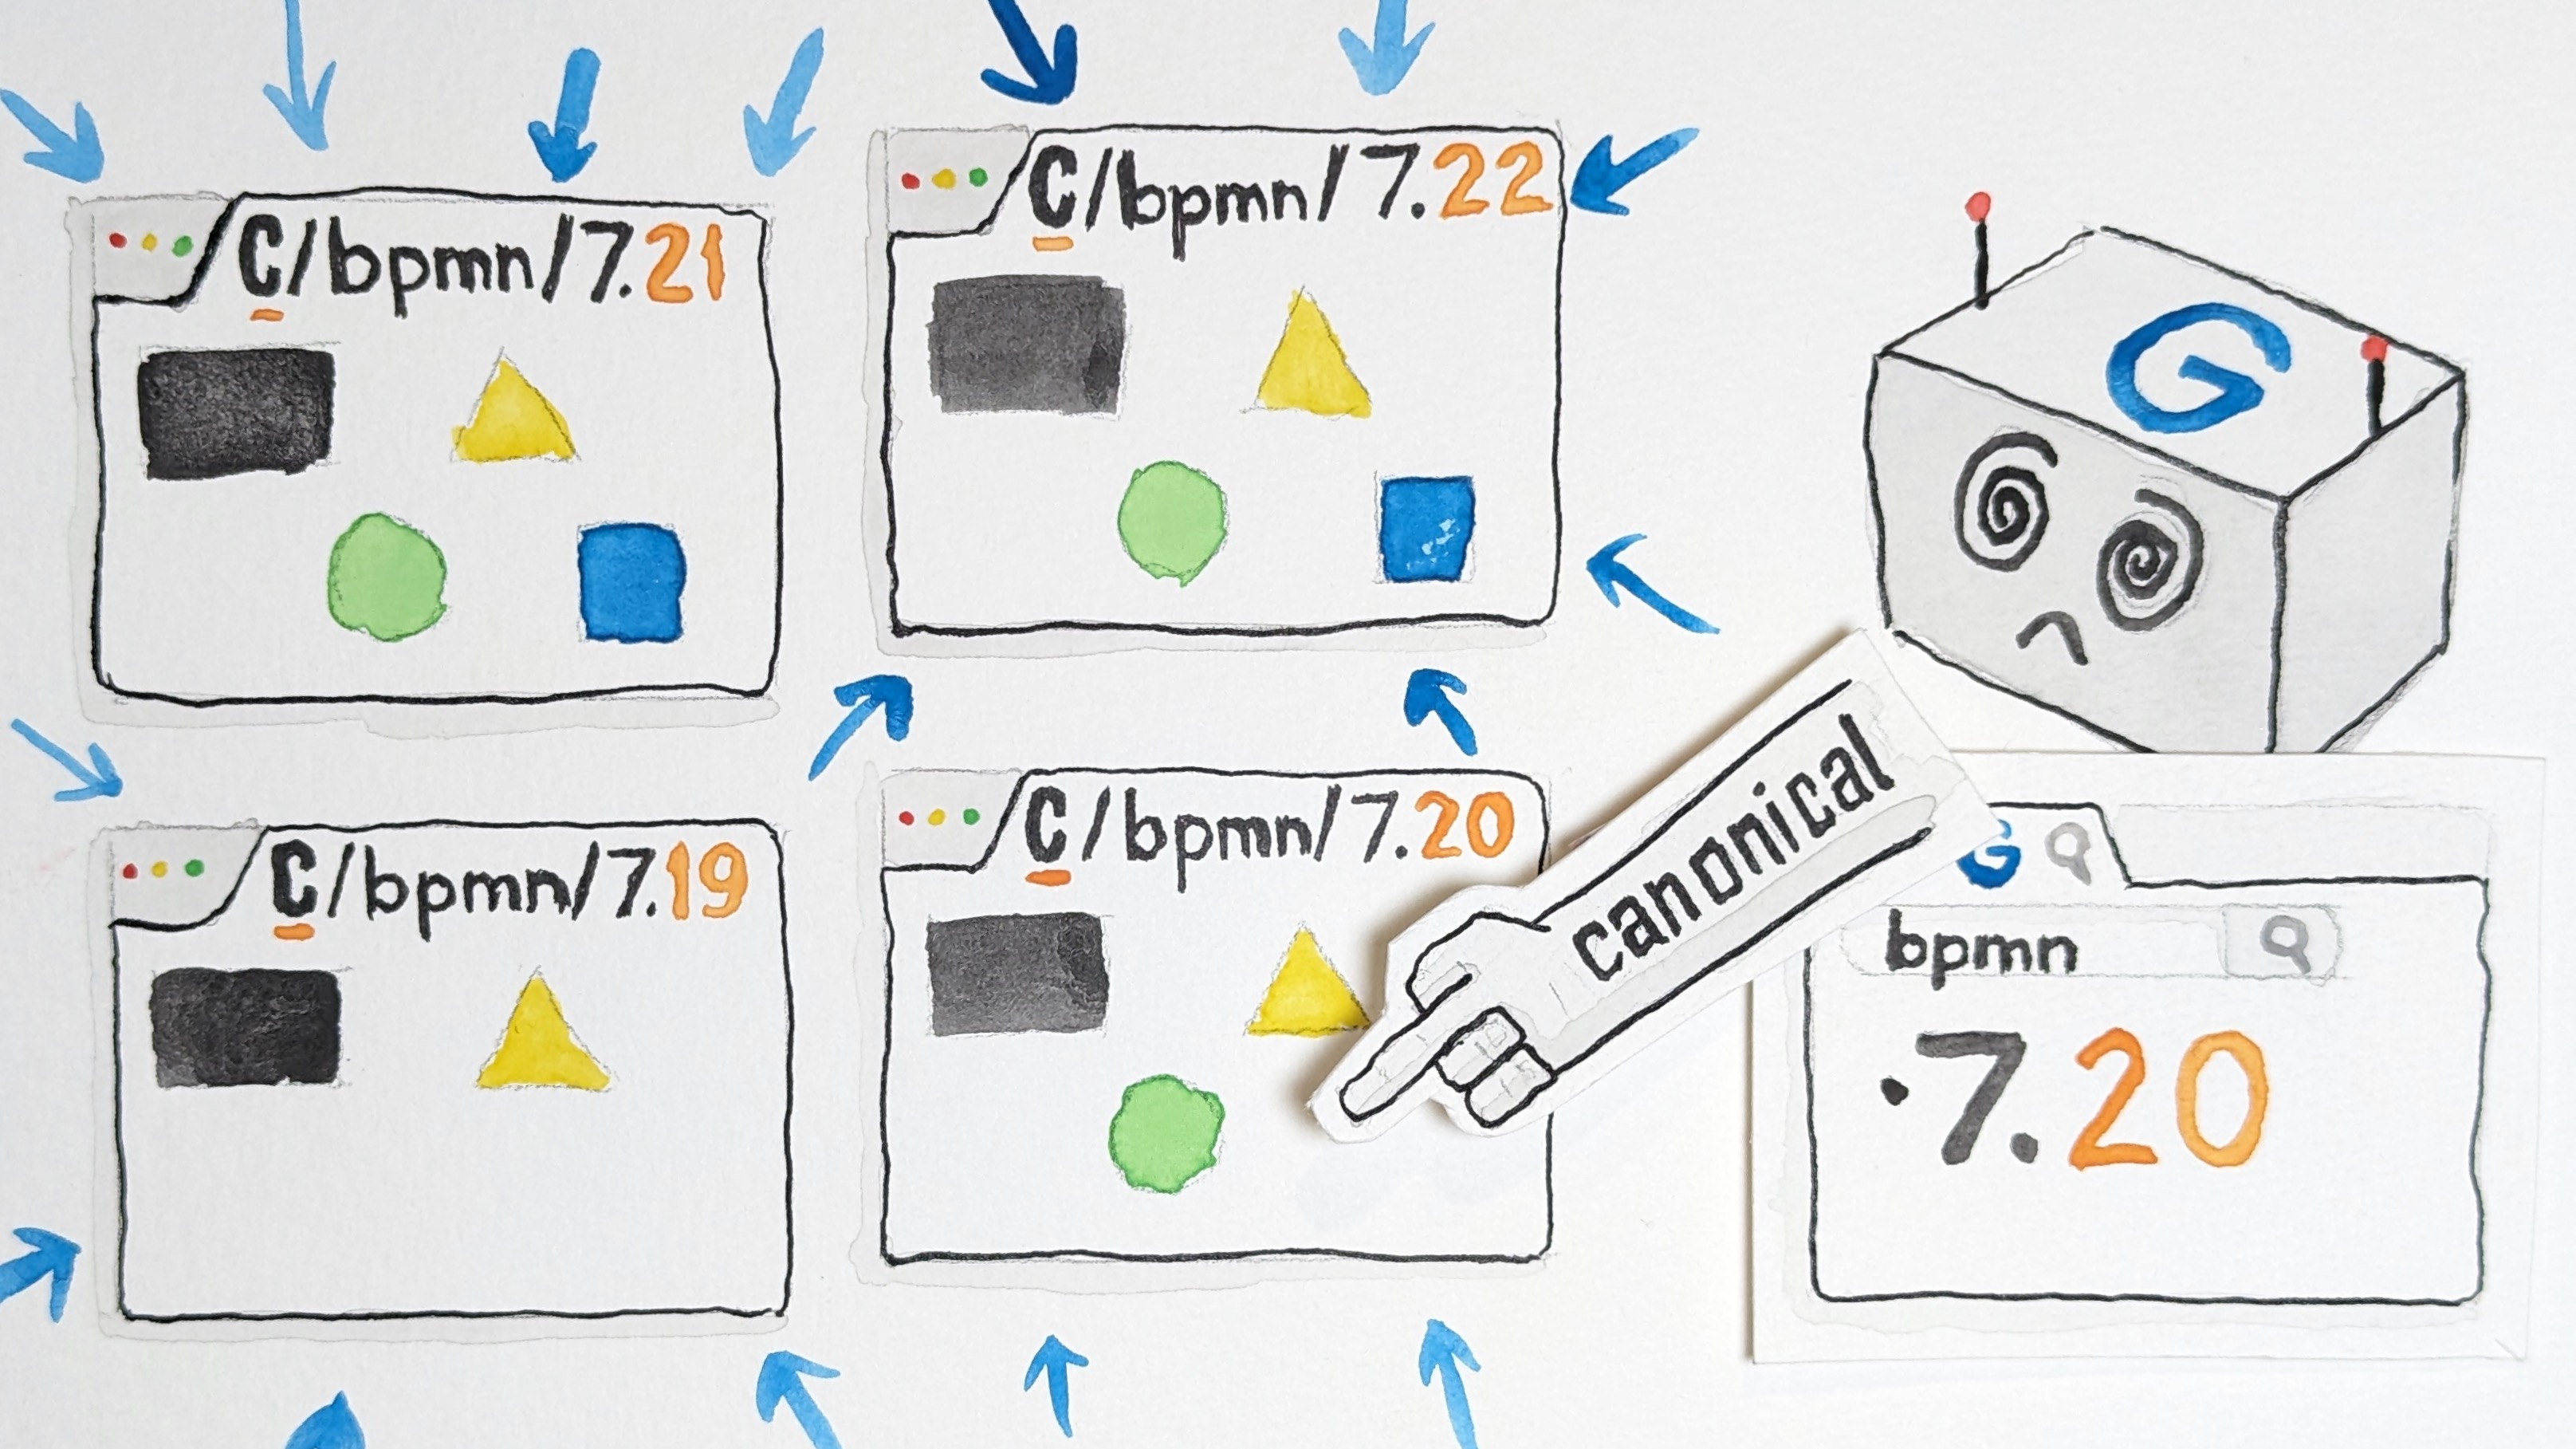 C/bpmn/7.21
C/bpmn/7.22
G
C/bpmn/7.19
C/bpmn/7.20
canonical
G
bpmn
·7.20